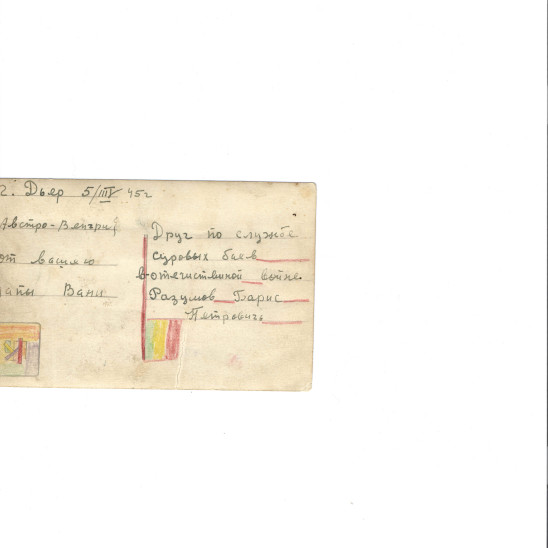 г. Дьер 5/IIV 45г
Австро-Венгрия
от вашяю
папы Вани
Друг по службе
суровых баев
в отегиственой войне
Разумов Парис
Петровичь